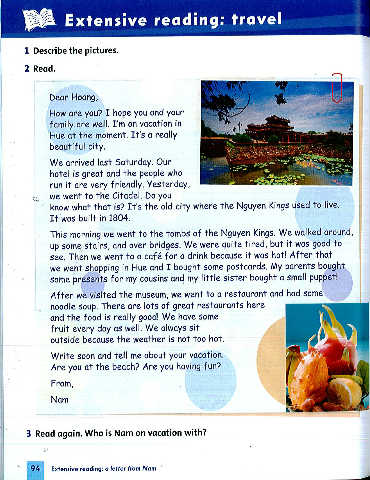 Extensive reading: travel
1 Describe the pictures.
2 Read.
Dear Hoang,
How are you? I hope you and your
family are well. I'm on vacation in
Hue at the moment. It's a really
beautiful city.
We arrived last Saturday. Our
hotel is great and the people who
run it are very friendly. Yesterday,
we went to the Citadel. Do you
know what that is? It's the old city where the Nguyen Kings used to live.
It was built in 1804.
This morning we went to the tombs of the Nguyen Kings. We walked around,
up some stairs, and over bridges. We were quite tired, but it was good to
see. Then we went to a café for a drink because it was hot! After that
we went shopping in Hue and I bought some postcards. My parents bought
some presents for my cousins and my little sister bought a small puppet!
After we visited the museum, we went to a restaurant and had some
noodle soup. There are lots of great restaurants here
and the food is really good! We have some
fruit every day as well. We always sit
outside because the weather is not too hot.
Write soon and tell me about your vacation.
Are you at the beach? Are you having fun?
From,
Nam
3 Read again. Who is Nam on vacation with?
94 Extensive reading: a letter from Nam